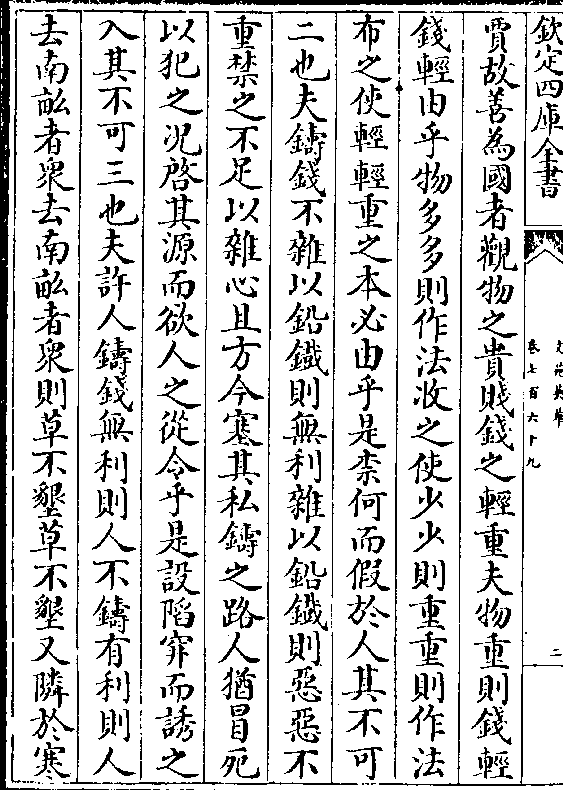 欽定四庫全書
文苑英華
卷七百六十九
二
賈故善為國者觀物之貴賤錢之輕重夫物重則錢輕
錢輕由乎物多多則作法收之使少少則重重則作法
布之使輕輕重之本必由乎是柰何而假於人其不可
二也夫鑄錢不雜以鉛鐵則無利雜以鉛鐵則惡惡不
重禁之不足以雜心且方今塞其私鑄之路人猶冒死
以犯之況啓其源而欲人之從令乎是設䧟穽而誘之
入其不可三也夫許人鑄錢無利則人不鑄有利則人
去南畝者衆去南畝者衆則草不墾草不墾又隣於寒